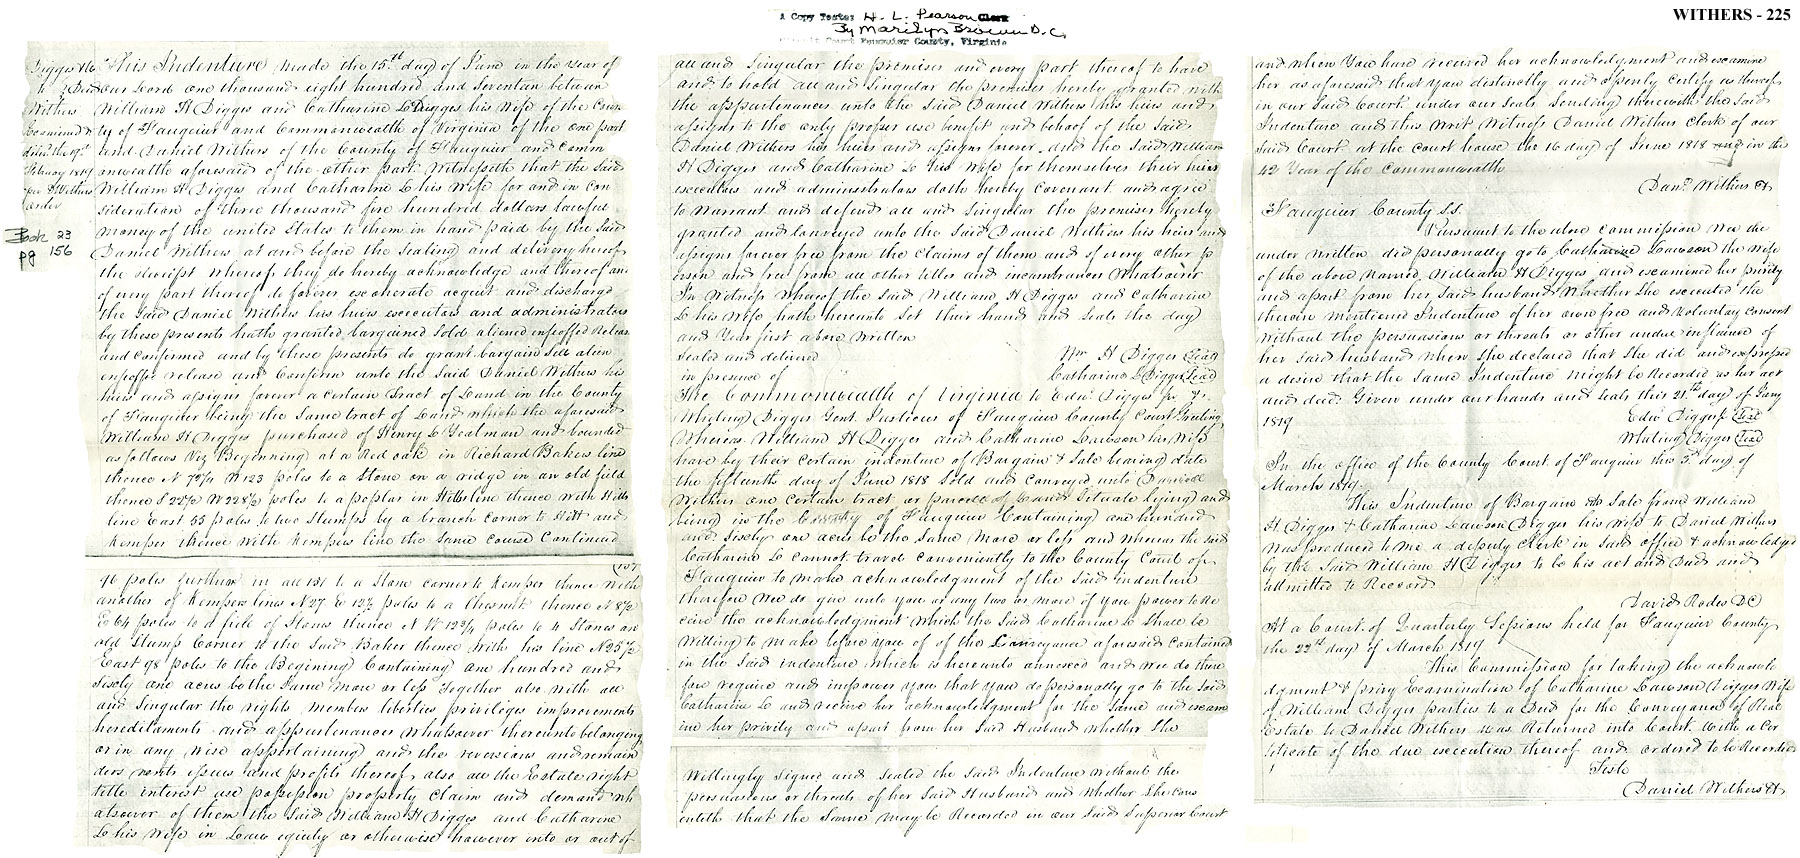 WITHERS - 225
A Copy Teste: H. L. Pearson Clerk
By Marilyn Brown D.C.
Circuit Court Fauquier County, Virginia
Digges &c
to } Deed
Withers
Examined &
delivd the 19th
February 1819
per D Withers
order
Book 23
pg 156
This Indenture made the 15th day of June in the year of
our Lord one thousand eight hundred and Seventeen between
William H Digges and Catharine L Digges his Wife of the Coun
ty of Fauquier and Commonwealth of Virginia of the one part
and Daniel Withers of the County of Fauquier and comm
onwealth aforesaid of the other part. Witnesseth that the Said
William H Digges and Catharine L his Wife for and in con
sideration of three thousand five hundred dollars lawful
money of the united States to them in hand paid by the Said
Daniel Withers at and before the Sealing and delivery hereof
the receipt whereof they do hereby acknowledge and thereof and
of every part thereof do forever exonerate acquit and discharge
the Said Daniel Withers his heirs executors and administrators
by these presents hath granted bargained Sold aliened enfeoffed Releas
and confirmed and by these presents do grant bargain Sell alien
enfeoffe release and Confirm unto the Said Daniel Withers his
heirs and assigns forever a certain Tract of Land in the County
of Fauquier being the Same tract of Land which the aforesaid
William H Digges purchased of Henry C Yeatman and bounded
as follows Viz Beginning at a Red oak in Richard Bakers line
thence N 79½ W 123 poles to a Stone on a ridge in an old field
thence S 22½ W 228½ poles to a poplar in Hitts line thence With Hitts
line East 55 poles to two Stumps by a branch corner to Hitt and
Kemper thence With Kempers line the Same course Continued
157
96 poles further in all 151 to a Stone corner to Kemper thence With
another of Kempers lines N 27 E 12½ poles to a Chesnut thence N 8½
E 64 poles to a pile of Stones thence N W 12¾ poles to 4 Stones an
old Stump Corner to the Said Baker thence With his line N 25½
East 98 poles to the Begining Containing one hundred and
Sixty one acres be the Same more or less Together also With all
and Singular the rights members liberties privileges improvements
hereditaments and appurtenances Whatsoever thereunto belonging
or in any Wise appertaining and the reversions and remain
ders rents issues and profits thereof, also all the Estate right
title interest use possession property Claim and demand wh
atsoever of them the Said William H Digges and Catharine
L his Wife in Law equity or otherwise however into or out of
all and Singular the premises and every part thereof to have
and to hold all and Singular the premises hereby granted with
the appurtenances unto the Said Daniel Withers his heirs and
assigns to the only proper use benefit and behoof of the Said
Daniel Withers his heirs and assigns forever and the Said William
H Digges and Catharine L his Wife for themselves their heirs
executors and administrators doth hereby Covenant and agree
to Warrant and defend all and Singular the premises hereby
granted and conveyed unto the Said Daniel Withers his heirs and
assigns forever free from the claims of them and of every other p
erson and free from all other titles and incumbrances Whatsoever
In Witness Whereof the Said William H Digges and Catharine
L his Wife hath hereunto Set their hands and Seals the day
and Year first above Written
Sealed and delivered Wm H Digges Seal
in presence of Catharine L Digges Seal
The Commonwealth of Virginia to Edwd Digges jr &
Whiting Digges Gent. Justices of Fauquier County Court Greeting
Whereas William H Digges and Catharine Lawson his Wife
have by their certain indenture of Bargain & Sale bearing date
the fifteenth day of June 1818 Sold and Conveyed unto Daniel
Withers one certain tract or parcel of Land Situate lying and
being in the County of Fauquier Containing one hundred
and Sixty one acres be the Same more or less and whereas the said
Catharine L cannot travel conveniently to the County Court of
Fauquier to make acknowledgment of the Said indenture
therefore We do give unto you or any two or more if you power to Re
ceive the acknowledgment which the Said Catharine L Shall be
Willing to make before you of of the Conveyance aforesaid contained
in the Said indenture which is hereunto annexed and we do there
fore require and impower you that you do personally go to the Said
Catharine L and receive her acknowledgment for the Same and exam
ine her privily and apart from her Said Husband whether She
Willingly Signed and Sealed the Said Indenture without the
persuasions or threats of her Said Husband and whether She cons
enteth that the Same may be Recorded in our Said Superior Court
and when You have received her acknowledgment and examine
her as aforesaid that you distinctly and openly certify us thereof
in our Said Court under our Seals Sending therewith the Said
Indenture and this Writ Witness Daniel Withers Clerk of our
Said Court at the court house the 16 day of June 1818 and in the
42 Year of the Commonwealth
Danl Withers Ct
Fauquier County S.S.
Pursuant to the above commission We the
under written did personally go to Catharine Lawson the Wife
of the above named William H Digges and examined her privily
and apart from her Said husband Whether She executed the
therein mentioned Indenture of her own free and Voluntary consent
Without the persuasions or threats or other undue influence of
her Said husband when She declared that She did and expressed
a desire that the Same Indenture might be Recorded as her act
and deed. Given under our hands and Seals this 21st day of Jany
1819
Edwd Digges jr Seal
Whiting Digges Seal
In the office of the County Court of Fauquier this 3d day of
March 1819.
This Indenture of Bargain & Sale from William
H Digges & Catharine Lawson Digges his Wife to Daniel Withers
Was produced to me a deputy Clerk in Said office & acknowledged
by the Said William H Digges to be his act and Deed and
admitted to Record
David Rodes DC
At a Court of Quarterly Sessions held for Fauquier County
the 22nd day of March 1819
This Commission for taking the acknowle
dgment & privy Examination of Catharine Lawson Digges Wife
of William Digges parties to a Deed for the Conveyance of Real
Estate to Daniel Withers Was Returned into Court With a Cer
tificate of the due execution thereof and ordered to be Recorded
Teste
Daniel Withers Ct